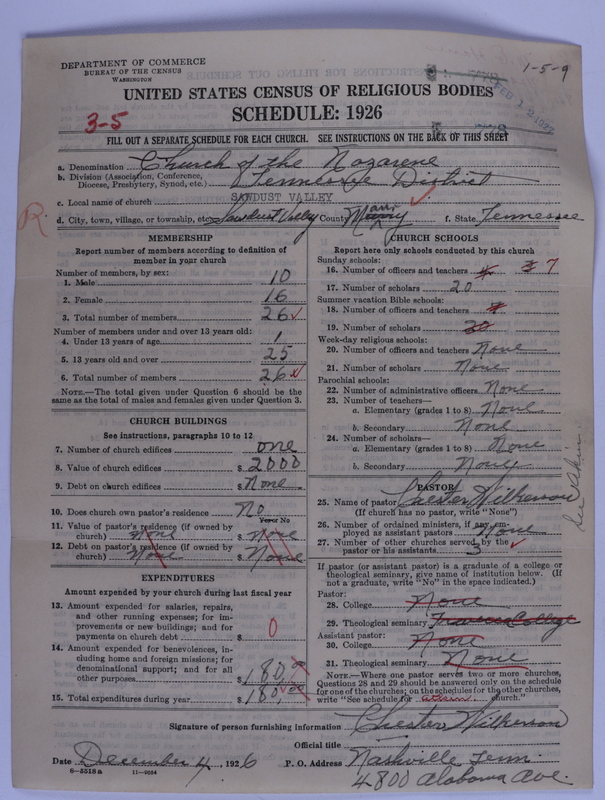 DEPARTMENT OF COMMERCE
BUREAU OF THE CENSUS
WASHINGTON
1-5-9
UNITED STATES CENSUS OF RELIGIOUS BODIES
SCHEDULE: 1926
3-5
FILL OUT A SEPARATE SCHEDULE FOR EACH CHURCH. SEE INSTRUCTIONS ON THE BACK OF THIS SHEET
a. Denomination Church of the Nazarene
b. Division (Association, Conference, Diocese, Presbytery, Synod, etc.) Tennessee District
c. Local name of church SAWDUST VALLEY
d. City, town, village, or township, etc. Sawdust Valley County Maury f. State Tennessee
R.
MEMBERSHIP
Report number of members according to definition of
member in your church
Number of members, by sex:
1. Male 10
2. Female 16
3. Total number of members 26
Number of members under and over 13 years old:
4. Under 13 years of age 1
5. 13 years old and over 25
6. Total number of members 26
NOTE.—The total given under Question 6 should be
same as the total of males and females given under Question 3.
CHURCH BUILDINGS
See instructions, paragraphs 10 to 12
7. Number of church edifices one
8. Value of church edifices $ 2000
9. Debt on church edifices $ None
10. Does church own pastor's residence No
Yes or No
11. Value of pastor's residence (if owned by
church) None $ None
12. Debt on pastor's residence (if owned by
church) None $ None
EXPENDITURES
Amount expended by your church during last fiscal year
13. Amount expended for salaries, repairs,
and other running expenses; for im-
provements or new buildings; and for
payments on church debt $ 0
14. Amount expended for benevolences, in-
cluding home and foreign missions; for
denominational support; and for all
other purposes $ 180
15. Total expenditures during year $ 180.00
CHURCH SCHOOLS
Report here only schools conducted by this church
Sunday schools:
16. Number of officers and teachers 7
17. Number of scholars 20
Summer vacation Bible schools:
18. Number of officers and teachers
19. Number of scholars 20
Week-day religious schools:
20. Number of officers and teachers None
21. Number of scholars None
Parochial schools:
22. Number of administrative officers None
23. Number of teachers—
a. Elementary (grades 1 to 8) None
b. Secondary None
24. Number of scholars—
a. Elementary (grades 1 to 8) None
b. Secondary None
PASTOR
25. Name of pastor Chester Wilkerson
(If church has no pastor, write "None")
26. Number of ordained ministers, if any, em-
ployed as assistant pastors None
27. Number of other churches served by the
pastor or his assistants 3
If pastor (or assistant pastor) is a graduate of a college or
theological seminary, give name of institution below. (If
not a graduate, write "No" in the space indicated.)
Pastor:
28. College None
29. Theological seminary Trevecca College
Assistant pastor:
30. College None
31. Theological seminary None
NOTE.—Where one pastor serves two or more churches,
Questions 28 and 29 should be answered only on the schedule
for one of the churches; on the schedules for the other churches,
write "See schedule for church."
Signature of person furnishing information Chester Wilkerson
Official title
Date December 4, 1926 P. O. Address Nashville Tenn.
4800 Alabama Ave.
8-5518a 11-9054